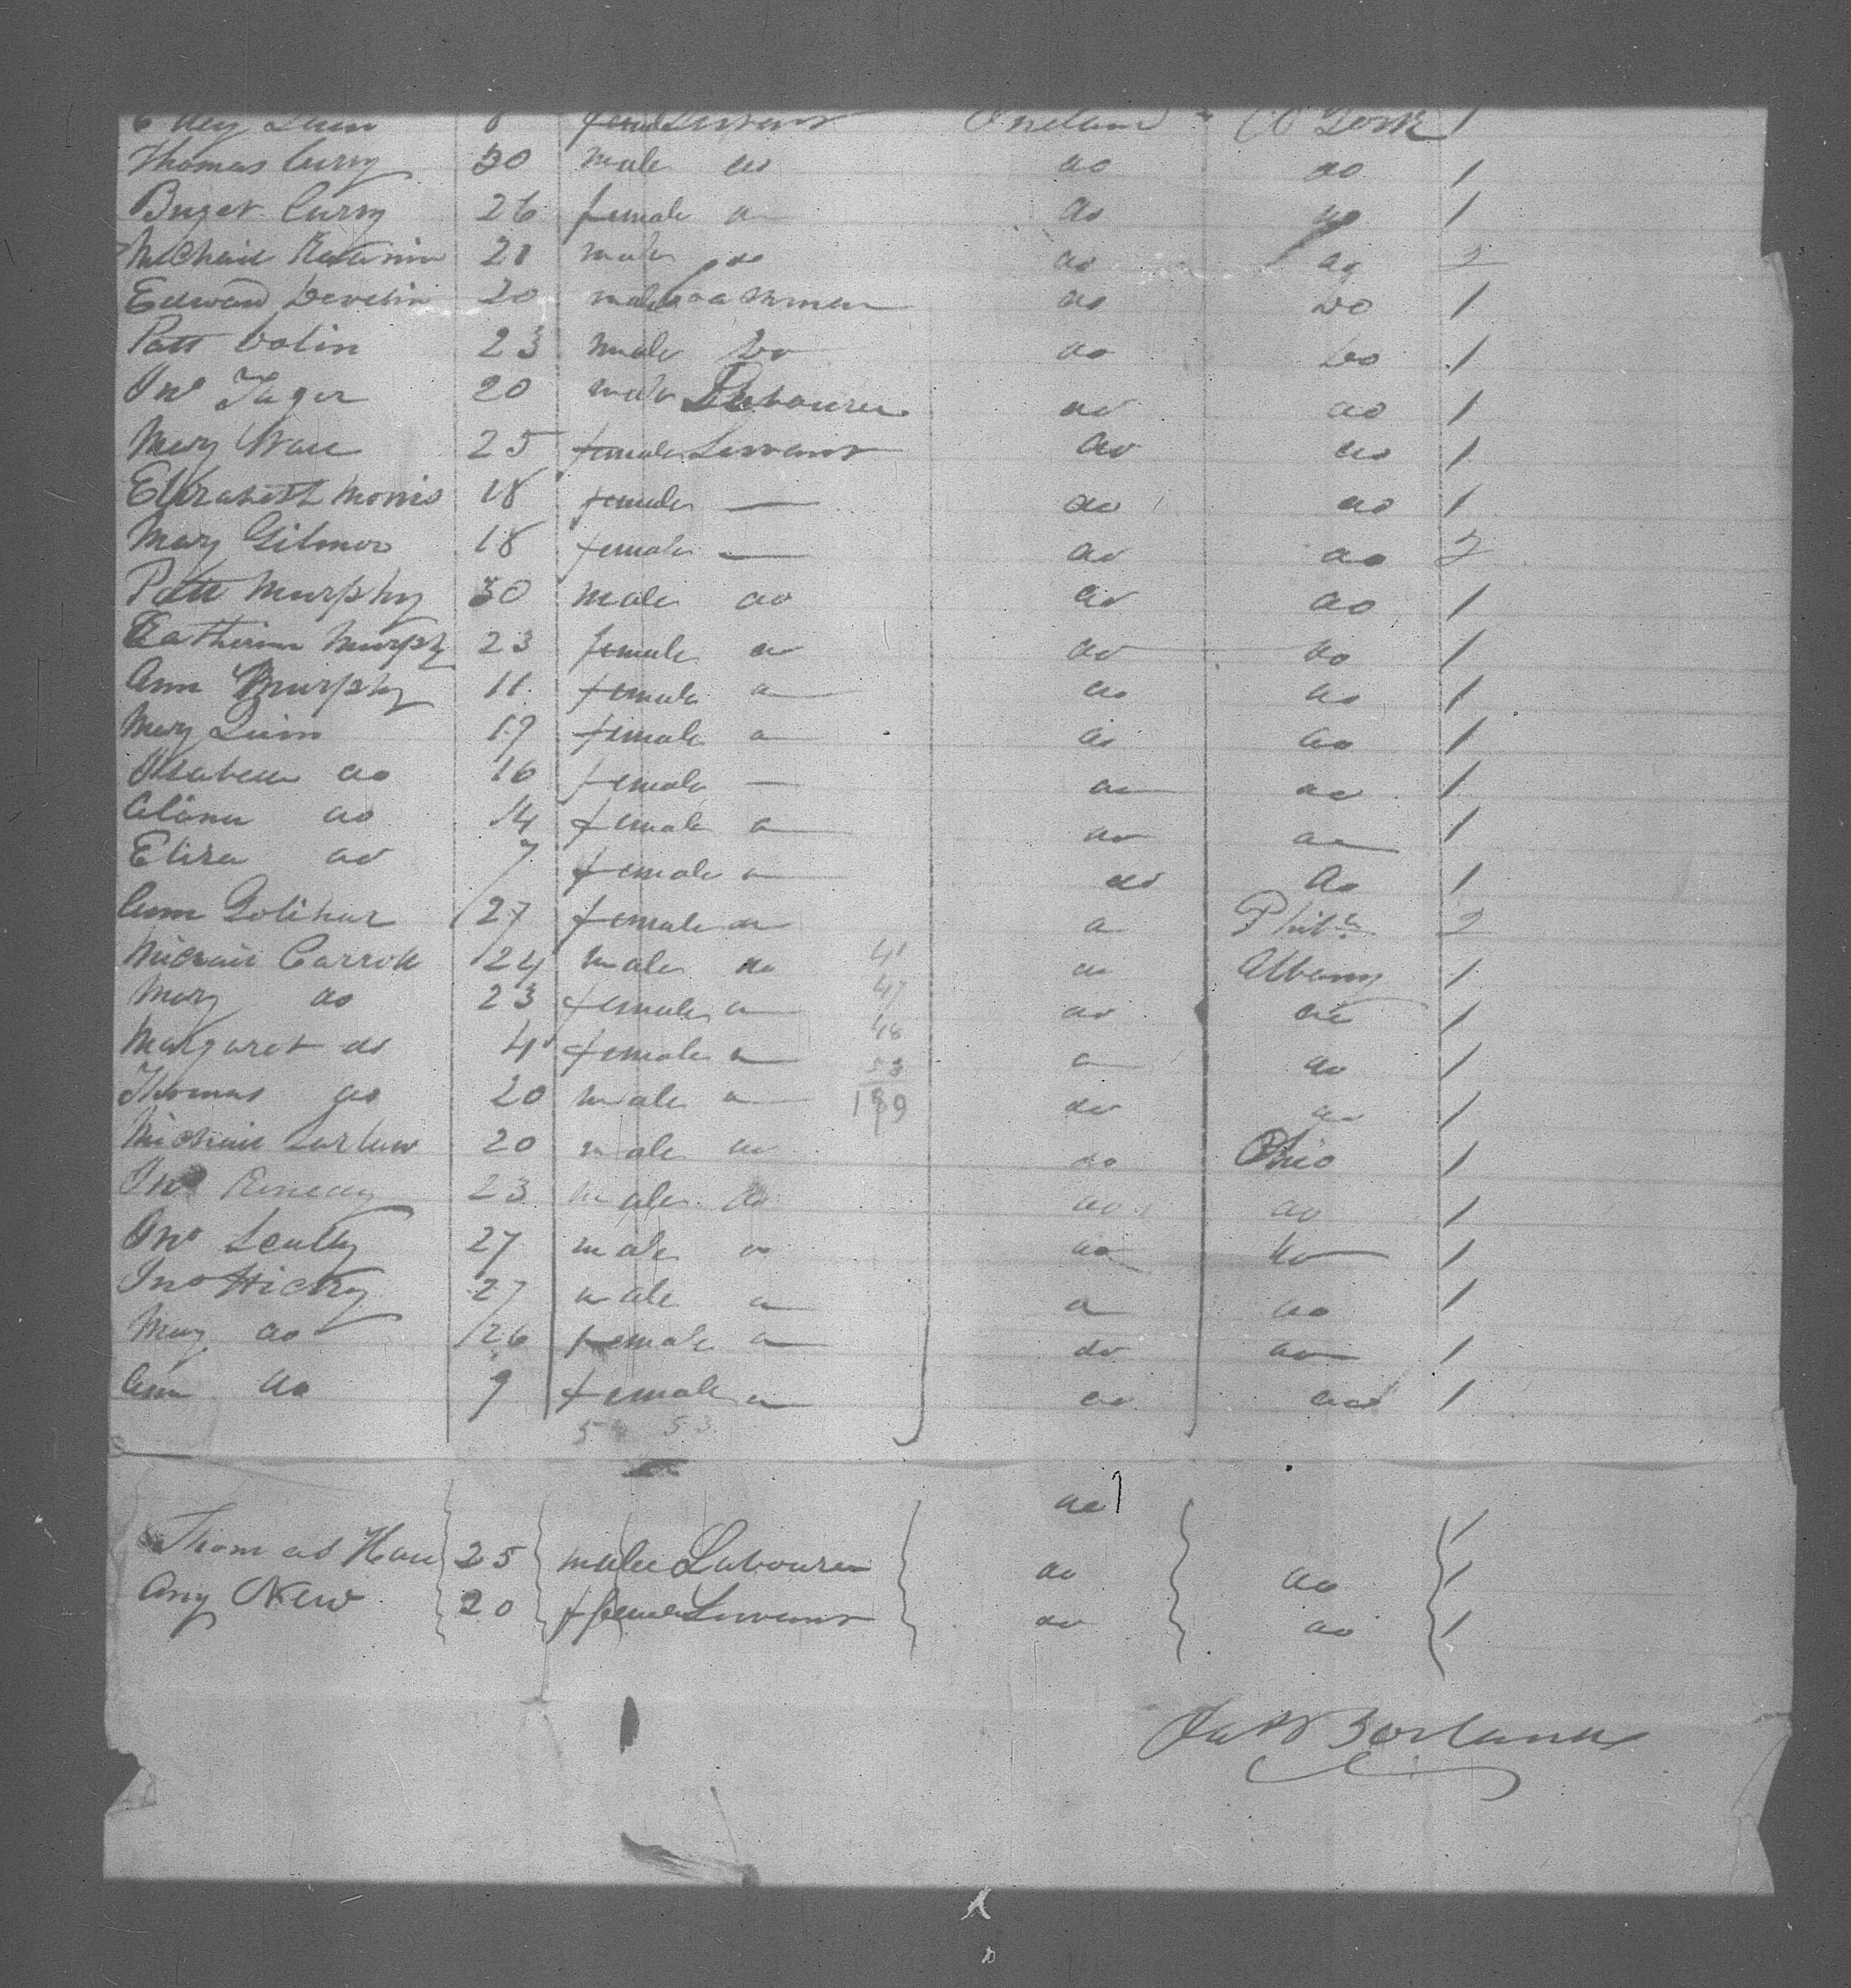 8 female Servant Ireland N York 1
Thomas Curry 30 male do do do 1
Briget Curry 26 female do do do 1
Michail 21 male do do do 2
Edward Develin 20 male Coachman do Do 1
Patt Dolin 23 male Do do Do 1
Jno Tager 20 male Labourer do do 1
Mary Wall 25 female Servant do do 1
Elizabeth Morris 18 female — do do 1
Mary Gilmor 18 female — do do 2
Patt Murphy 30 male do do do 1
Catherine Murphy 23 female do do do 1
Ann Murphy 11 female do do do 1
Mary Quinn 19 female do do do 1
Isabella do 16 female — do do 1
do 14 female do do do 1
Eliza do 7 female do do do 1
Ann Golihur 27 female do do Phila 2
Michail Carroll 24 male do 41 do Albany 1
Mary do 23 female do 47 do do 1
Margaret do 4 female do 48 do do 1
Thomas do 20 male do 53 do do 1
189
Michail 20 male do do Ohio 1
Jno 23 male do do do 1
Jno Scully 27 male do do do 1
Jno Hickey 27 male do do do 1
Mary do 26 female do do do 1
Ann do 9 female do do do 1
54 53
do 1
Thomas Hall 25 male Labourer do do 1
Any New 20 female Servant do do 1
Borland